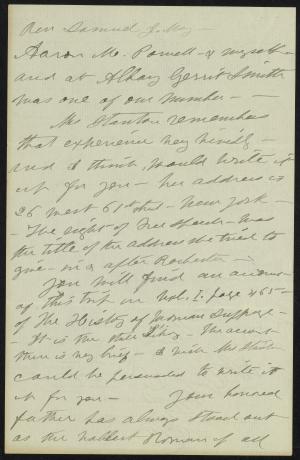 Rev Samuel J. May -
Aaron M. Powell - & myself -
and at Albany Gerrit Smith
was one of our number -
Mrs Stanton remembers
that experience very vividly -
and I think would write it
out for you - her address is
26 West 61st street - New York -
- The right of Free Speech - was
the title of the address she tried to
give - in & after Rochester -
You will find an account
of this trip in Vol. I. page 465 -
of The History of Woman Suffrage -
- It is in the Library - The account
there is very brief - I wish Mrs Stanton
could be persuaded to write it
out for you - Your honored
father has always stood out
as the noblest Roman of all